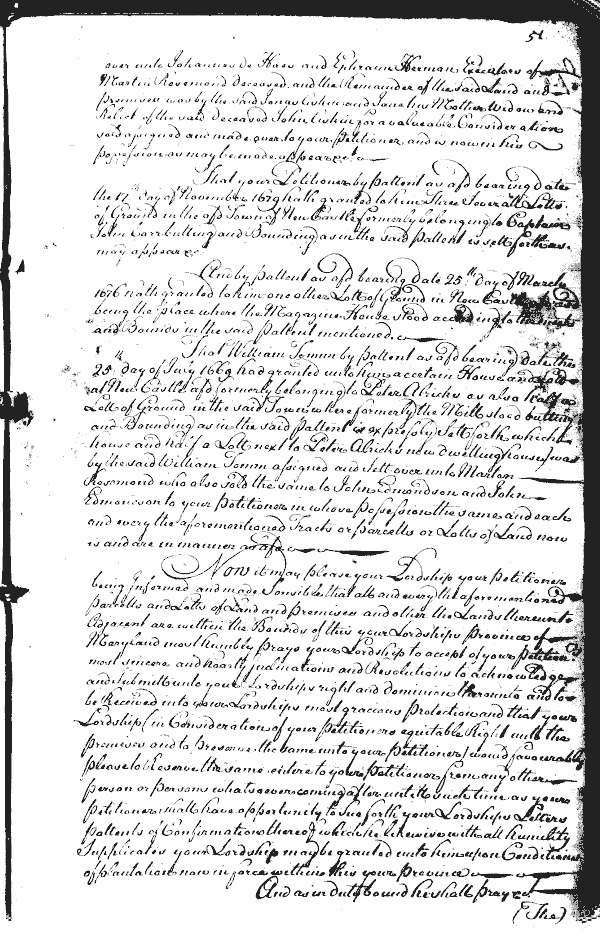 51
over unto Johannes De Haes and Ephraim Herman Executors of
Martin Rosemond Deceased and the Remainder of the said Land and
premises was by the said Jonas and Mother Widow and
Relict of the said Deceased John for a valueable Consideration
sold assigned and made over to your Petitioner and is now in his
possession as may be made appear &c.
That your Petitioner by Pattent as afd bearing date
the 17th day of November 1679 hath granted to him Three Severall Lotts
of Ground in the afd Town of New Castle formerly belonging to Captain
John Carr butting and Bounding as in the said Pattent is sett forth as
may appear &c
And by Pattent as afd bearing Date 25th Day of March
1676 hath granted to him one other Lott of Ground in New Castle
being the place where the Magazene House stood according to the
and Bounds in the said Pattent mentioned.
That William Tomm by Pattent as afd bearing Date the
25th day of July 1669 had granted unto him a certain House and
at New Castle afd formerly belonging to Peter Alrichs as also half a
Lott of Ground in the said Town where formerly the Mill stood butting
and Bounding as in the said Pattent is expressly Sett forth which
house and half a Lott next to Peter Alrichs now dwelling house was
by the said William Tomm assigned and Sett over unto Marten
Rosemond who also sold the same to John Edmondson and John
Edmondson to your Petitioner in whose Possession the same and each
and every the aforementioned Tracts or parcells or Lotts of Land now
is and are in manner as afd
Now it may please your Lordship your Petitioner
being informed and made Sensible that all and every the aforementioned
Parcells and Lotts of Land and Premises and other the Lands thereunto
Adjacent are within the Bounds of this your Lordships Province of
Maryland most humbly prays your Lordship to accept of your Petition
most sincere and hearty and Resolutions to acknowledge
and submitt unto your Lordships right and dominion thereunto and to
be Received into your Lordships most gracious Protection and that your
Lordship (in Consideration of your Petitioners equitable Right unto the
premises and to preserve the same unto your Petitioner) would favourably
please to Reserve the same entire to your Petitioner from any other
person or persons whatsoever coming after untill such time as your
Petitioner shall have opportunity to Sue forth your Lordships Letters
Pattents of Confirmation thereof which he likewise with all humility
Supplicates your Lordship may be granted unto him upon Conditions
of plantation now in force within this your Province
And as in duty bound he shall pray &c
(The)